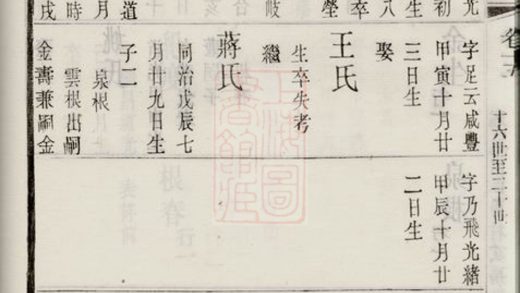 十六世至二十世
光
初
生
八
卒
塋
岐
道
月
時
戌
字足云咸豐
甲寅十月廿
三日生
娶
王氏
生卒失考
繼
蔣氏
同治戊辰七
月廿九日生
子二
泉根
雲根出嗣
金壽兼嗣金
字乃飛光緒
甲辰十月廿
二日生
上海圖書館藏